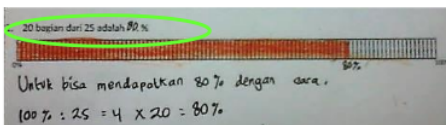 20 bagian dari 25 adalah 80 %
0% 80% 100%
Untuk bisa mendapatkan 80% dengan cara.
100% : 25 = 4 x 20 = 80%